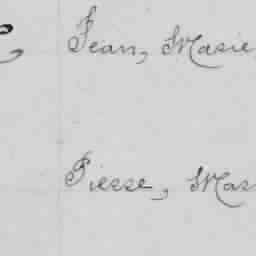 Jean, Marie
Pierre, Mar